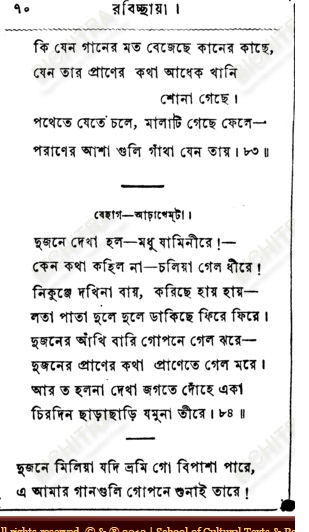 ৭০ রবিচ্ছায়া ।
কি যেন গানের মত বেজেছে কানের কাছে,
যেন তার প্রাণের কথা আধেক খানি
শোনা গেছে ।
পথেতে যেতে চলে, মালাটি গেছে ফেলে—
পরাণের আশা গুলি গাঁথা যেন তায় । ৮৩ ॥
বেহাগ—আড়াখেম্‌টা ।
দুজনে দেখা হল—মধু যামিনীরে !—
কেন কথা কহিল না—চলিয়া গেল ধীরে !
নিকুঞ্জে দখিনা বায়, করিছে হায় হায়—
লতা পাতা দুলে দুলে ডাকিছে ফিরে ফিরে ।
দুজনের আঁখি বারি গোপনে গেল ঝরে—
দুজনের প্রাণের কথা প্রাণেতে গেল মরে ।
আর ত হলনা দেখা জগতে দোঁহে একা
চিরদিন ছাড়াছাড়ি যমুনা তীরে । ৮৪ ॥
দুজনে মিলিয়া যদি ভ্রমি গো বিপাশা পারে,
এ আমার গানগুলি গোপনে শুনাই তারে !
ll rights reserved. © & ® 2012 | School of Cultural Texts & Re